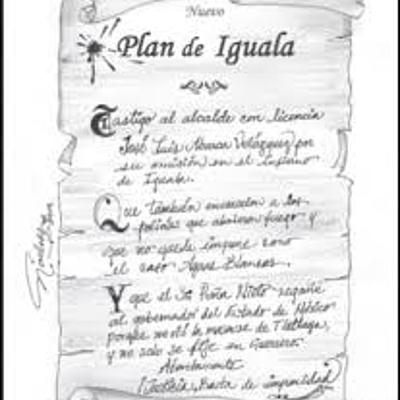 Nuevo
Plan de Iguala
Castigo al alcalde con licencia
José Luis Abarca Velázquez por
su omisión en el
de Iguala.
Que también encarcelen a los
policías que abrieron fuego y
que no quede impune como
el caso Aguas Blancas.
Y que el Sr. Peña Nieto regañe
al gobernador del Estado de México
porque
la masacre de Tlatlaya,
y no solo se fije en Guerrero.
Atentamente
Justicia, Basta de impunidad